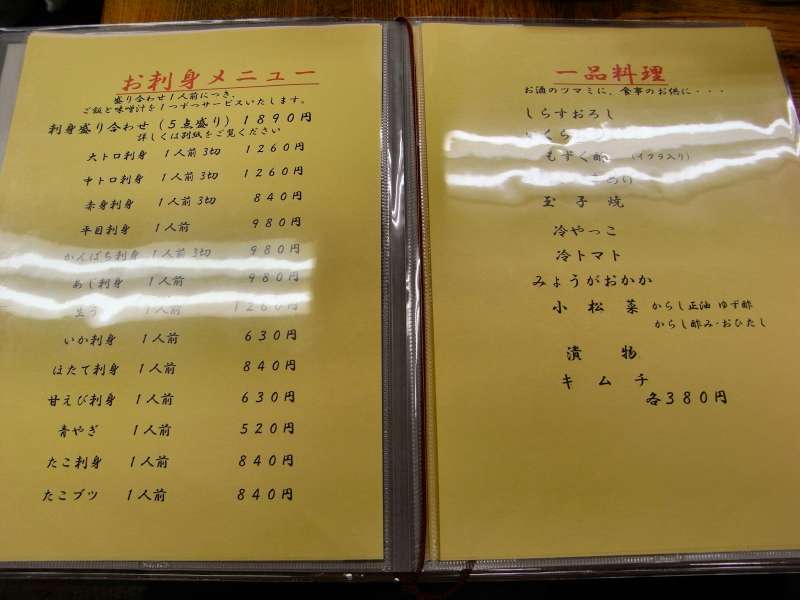 お刺身メニュー
盛り合わせ１人前につき、
ご飯と味噌汁を１つずつサービスいたします。
刺身盛り合わせ（５点盛り）１８９０円
詳しくは別紙をご覧ください
大トロ刺身 １人前３切 １２６０円
中トロ刺身 １人前３切 １２６０円
赤身刺身 １人前３切 ８４０円
平目刺身 １人前 ９８０円
かんぱち刺身 １人前３切 ９８０円
あじ刺身 １人前 ９８０円
生う １２６０円
いか刺身 １人前 ６３０円
ほたて刺身 １人前 ８４０円
甘えび刺身 １人前 ６３０円
青やぎ １人前 ５２０円
たこ刺身 １人前 ８４０円
たこブツ １人前 ８４０円
一品料理
お酒のツマミに、食事のお供に・・・
しらすおろし
いくら
もずく酢 （イクラ入り）
玉子焼
冷やっこ
冷トマト
みょうがおかか
小松菜 からし正油 ゆず酢
からし酢み・おひたし
漬物
キムチ
各３８０円